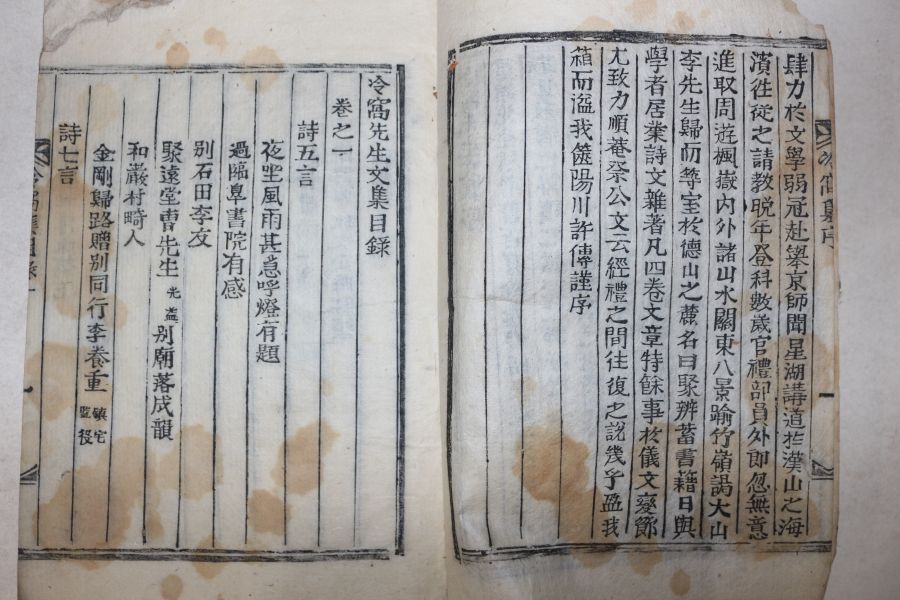 肆力於文學弱冠赴擧京師聞星湖講道於漢山之海
濱往從之請教晩年登科數歲官禮部員外即忽無意
進取周遊楓嶽內外諸山水關東八景踰竹嶺謁大山
李先生歸而等室於德山之麓名曰聚辨蓄書籍日與
學者居業詩文雜著凡四卷文章特餘事於儀文變節
尤致力順菴祭公文云經禮之間往復之說幾乎盈我
箱而溢我篋陽川許傳謹序
冷窩先生文集目錄
卷之一
詩五言
夜坐風雨甚急呼燈有題
過臨皐書院有感
別石田李友
聚遠堂曺先生 光益 別廟落成韻
和巖村畸人
金剛歸路贈別同行李養重 鎭宅 監役
詩七言